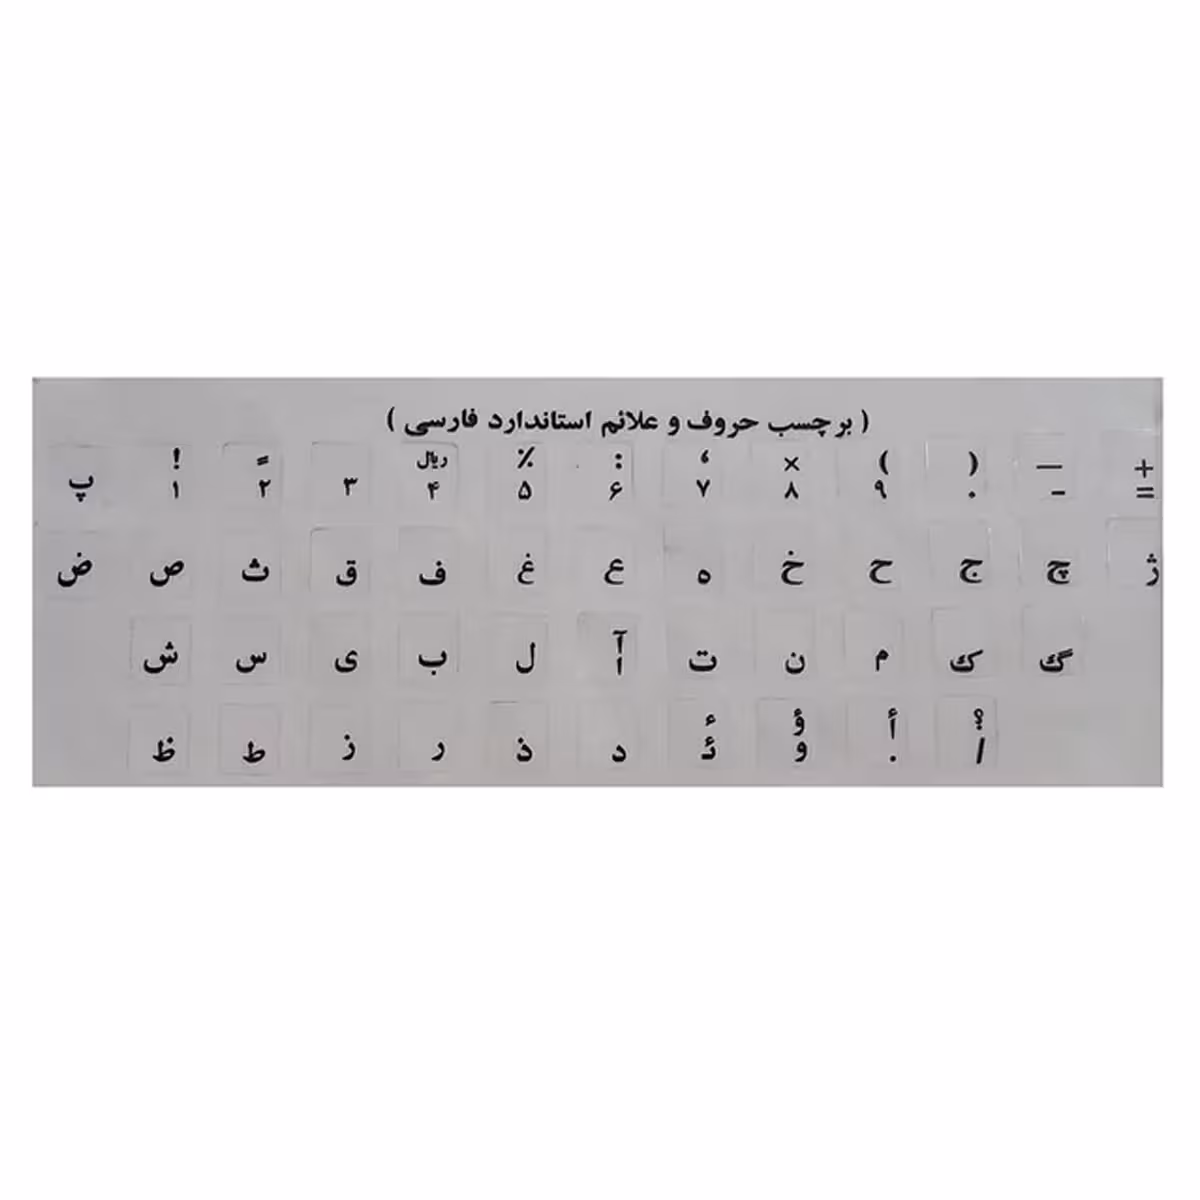 ( برچسب حروف و علائم استاندارد فارسی )
پ ! ۱ = ۲ ۳ ریال ۴ ٪ ۵ : ۶ ، ۷ × ۸ ( ۹ ) ۰ — - + =
ض ص ث ق ف غ ع ه خ ح ج چ ژ
ش س ی ب ل آ ا ت ن م ک گ
ظ ط ز ر ذ د ء ئ ؤ و أ . ؟ /